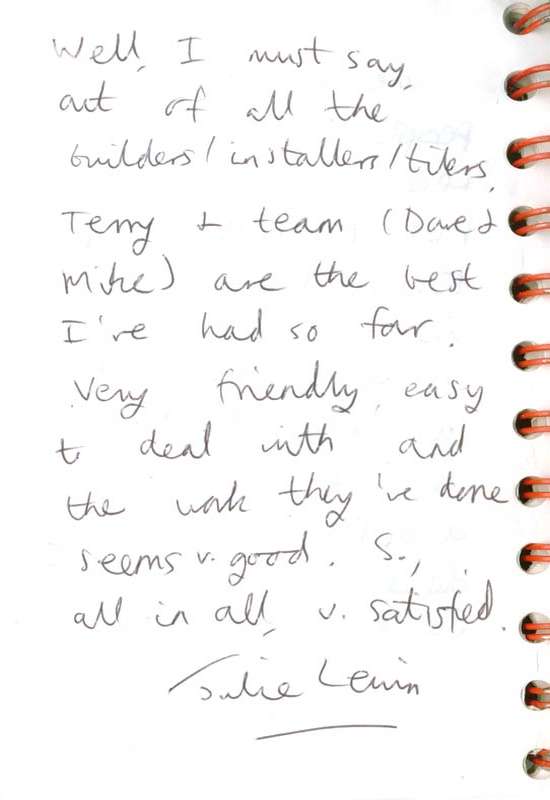 Well, I must say,
out of all the
builders/installers/tilers,
Terry + team (Dave &
Mike) are the best
I've had so far.
Very friendly, easy
to deal with and
the work they've done
seems v. good. So,
all in all, v. satisfied.
Julie Lewin